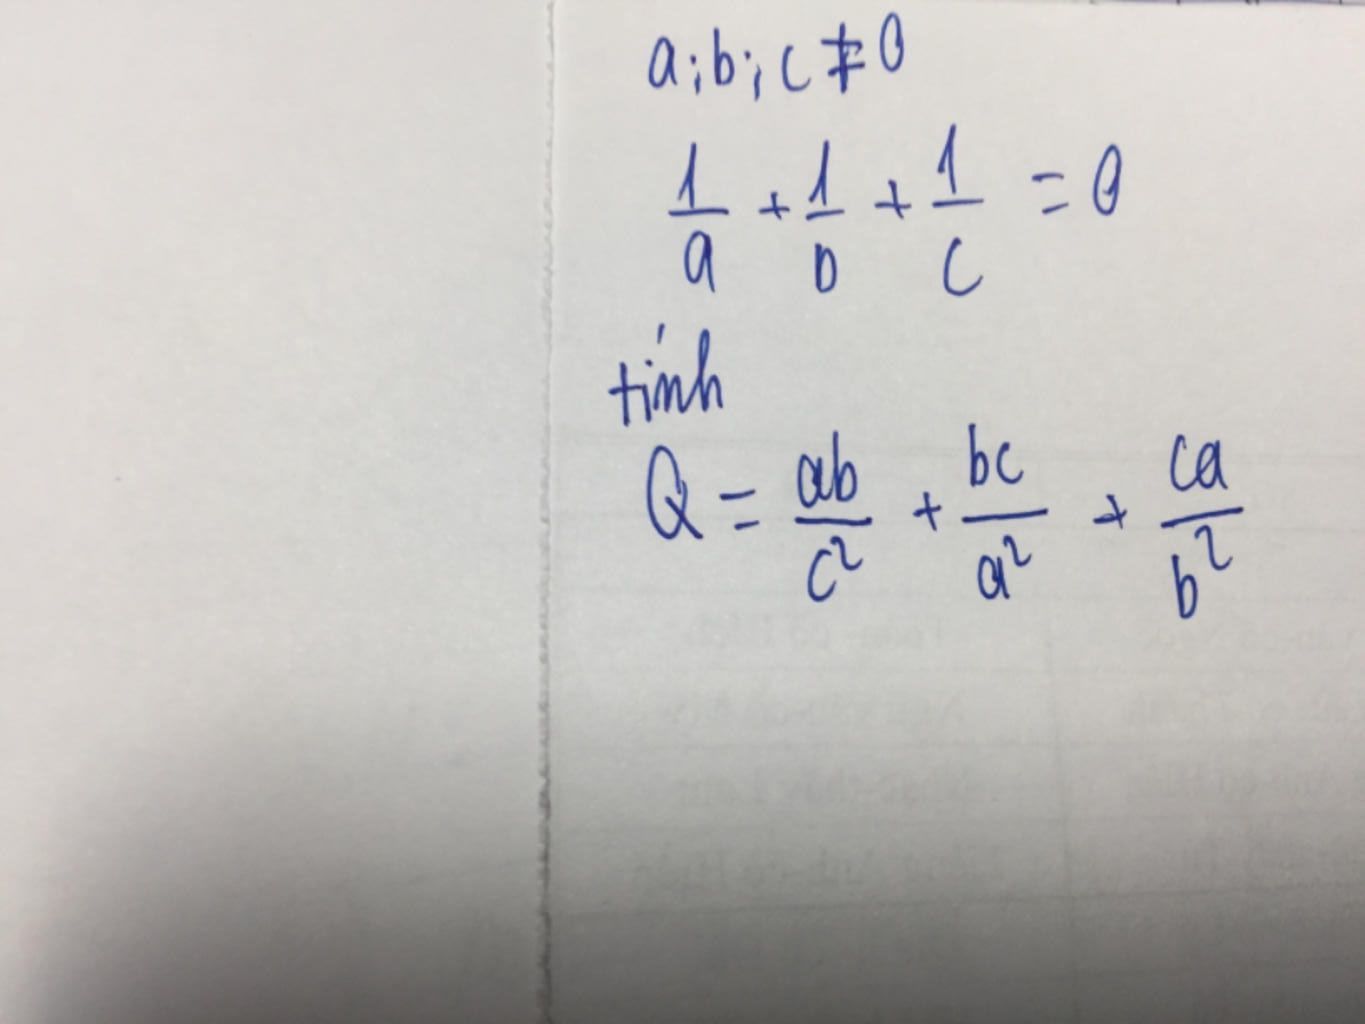 a;b;c ≠ 0
1/a + 1/b + 1/c = 0
tính
Q = ab/c² + bc/a² + ca/b²